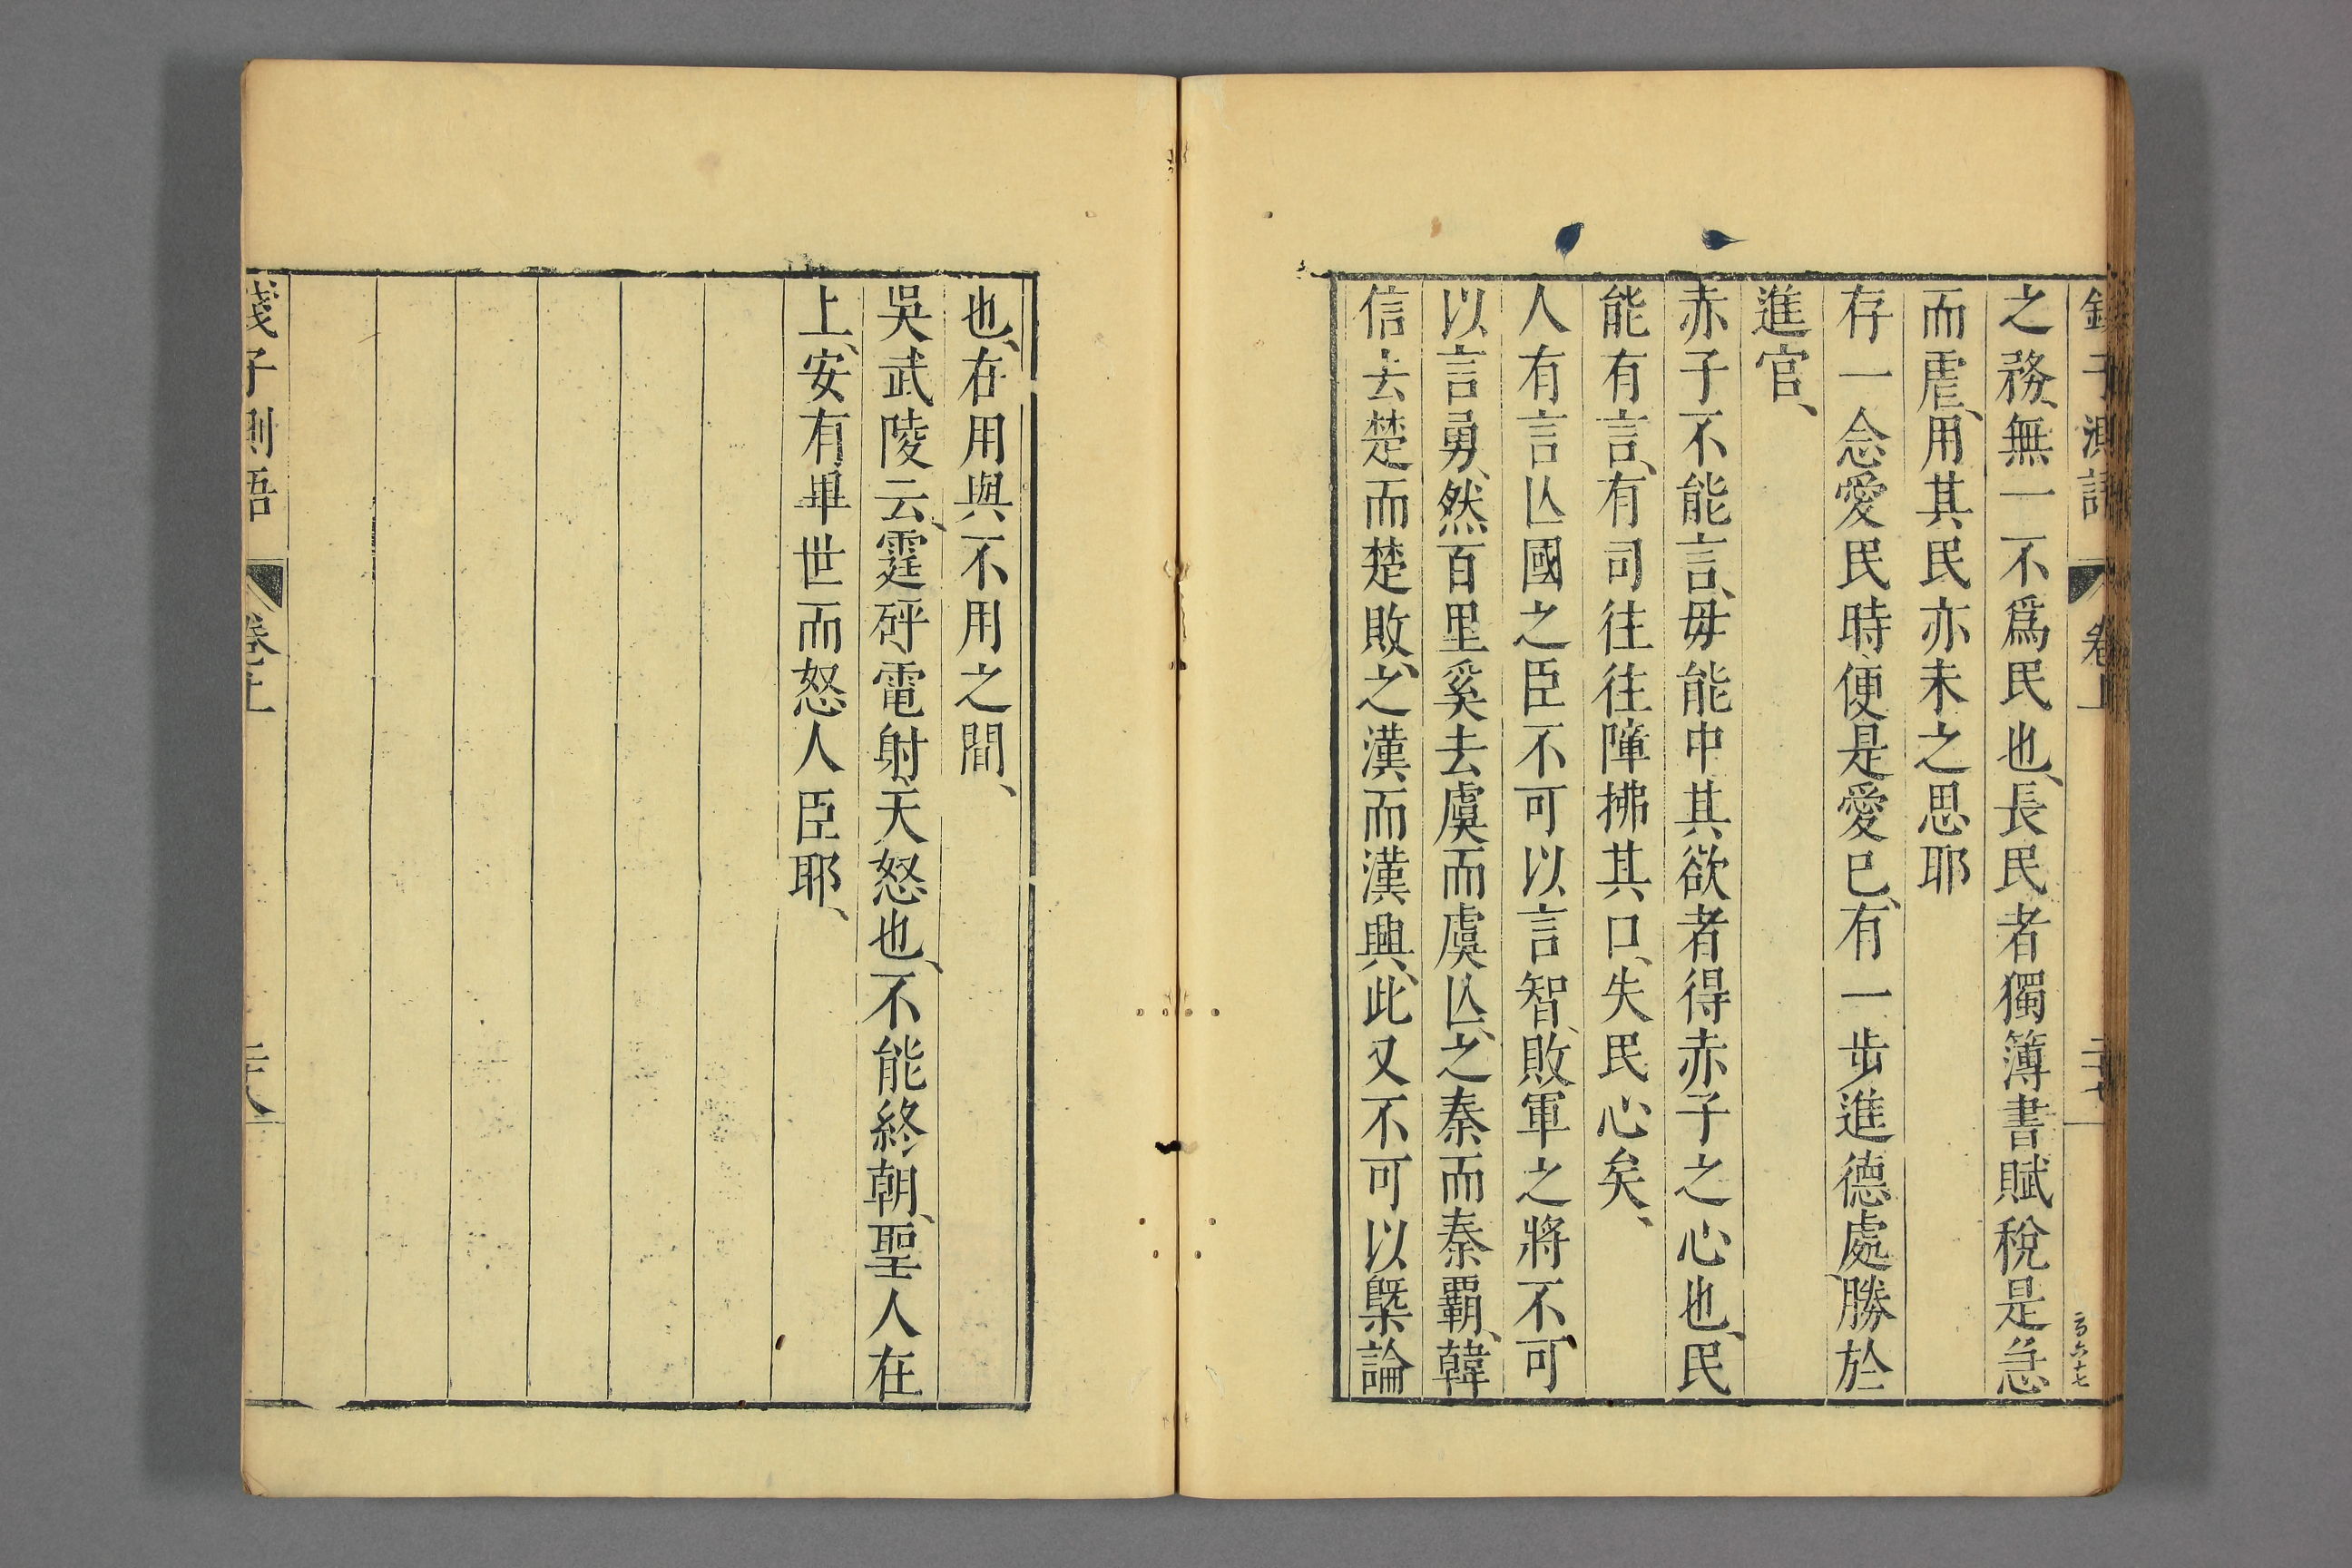 錢子測語 卷上 二十七
之務、無一不爲民也、長民者獨簿書賦稅是急
而虐、用其民亦未之思耶
存一念愛民時、便是愛巳、有一步進德處、勝於
進官、
赤子不能言、毋能中其欲者得赤子之心也、民
能有言、有司往往障拂其口、失民心矣、
人有言亾國之臣不可以言智、敗軍之將不可
以言勇、然百里奚去虞而虞亾、之秦而秦覇、韓
信去楚而楚敗、之漢而漢興、此又不可以槩論
也、在用與不用之間、
吳武陵云、霆砰電射、天怒也、不能終朝、聖人在
上、安有畢世而怒人臣耶、
錢子測語 卷上 二十八